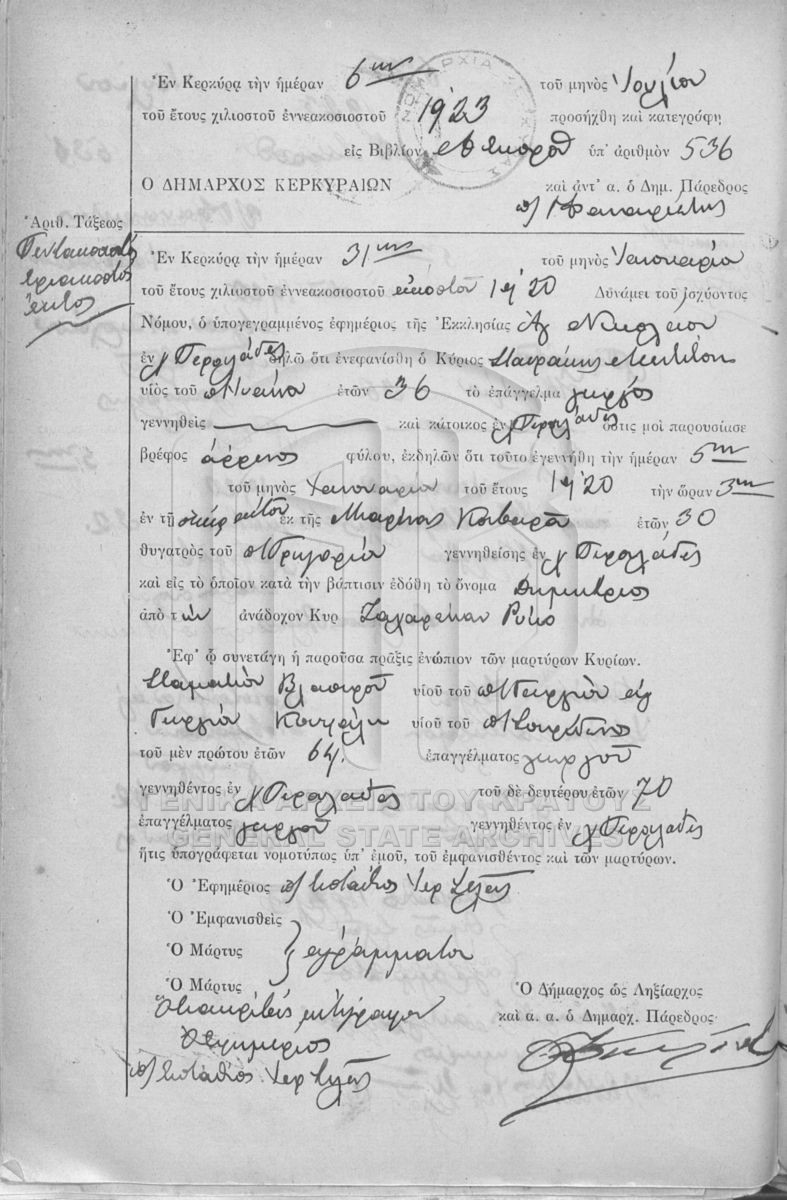 Ἐν Κερκύρᾳ τὴν ἡμέραν 6ην τοῦ μηνὸς Ἰουλίου
τοῦ ἔτους χιλιοστοῦ ἐννεακοσιοστοῦ 1923 προσήχθη καὶ κατεγράφη
εἰς Βιβλίον ὑπ' ἀριθμὸν 536
Ο ΔΗΜΑΡΧΟΣ ΚΕΡΚΥΡΑΙΩΝ καὶ ἀντ' α. ὁ Δημ. Πάρεδρος
Ἀριθ. Τάξεως
Πεντακοσιοστὸς
τριακοστὸς
ἕκτος
Ἐν Κερκύρᾳ τὴν ἡμέραν 31ην τοῦ μηνὸς Ἰανουαρίου
τοῦ ἔτους χιλιοστοῦ ἐννεακοσιοστοῦ εἰκοστοῦ 1920 Δυνάμει τοῦ ἰσχύοντος
Νόμου, ὁ ὑπογεγραμμένος ἐφημέριος τῆς Ἐκκλησίας Ἁγ Νικολάου
ἐν χ Περουλάδες δηλῶ ὅτι ἐνεφανίσθη ὁ Κύριος
υἱὸς τοῦ ἐτῶν 36 τὸ ἐπάγγελμα γεωργὸς
γεννηθεὶς καὶ κάτοικος ἐν χ Περουλάδες ὅστις μοὶ παρουσίασε
βρέφος ἄρρενος φύλου, ἐκδηλῶν ὅτι τοῦτο ἐγεννήθη τὴν ἡμέραν 5ην
τοῦ μηνὸς Ἰανουαρίου τοῦ ἔτους 1920 τὴν ὥραν 3ην
ἐν τῇ οἰκίᾳ αὐτοῦ ἐκ τῆς Μαρίνας ἐτῶν 30
θυγατρὸς τοῦ π Γρηγορίου γεννηθείσης ἐν χ Περουλάδες
καὶ εἰς τὸ ὁποῖον κατὰ τὴν βάπτισιν ἐδόθη τὸ ὄνομα Δημήτριος
ἀπὸ τὸν ἀνάδοχον Κυρ
Ἐφ' ᾧ συνετάγη ἡ παροῦσα πρᾶξις ἐνώπιον τῶν μαρτύρων Κυρίων.
Σταματίου υἱοῦ τοῦ π Γεωργίου
Γεωργίου υἱοῦ τοῦ π Σπυρίδωνος
τοῦ μὲν πρώτου ἐτῶν 64 ἐπαγγέλματος γεωργοῦ
γεννηθέντος ἐν χ Περουλάδες τοῦ δὲ δευτέρου ἐτῶν 70
ἐπαγγέλματος γεωργοῦ γεννηθέντος ἐν χ Περουλάδες
ΓΕΝΙΚΑ ΑΡΧΕΙΑ ΤΟΥ ΚΡΑΤΟΥΣ
GENERAL STATE ARCHIVES
ἥτις ὑπογράφεται νομοτύπως ὑπ' ἐμοῦ, τοῦ ἐμφανισθέντος καὶ τῶν μαρτύρων.
Ὁ Ἐφημέριος
Ὁ Ἐμφανισθεὶς
Ὁ Μάρτυς ἀγράμματοι
Ὁ Μάρτυς Ὁ Δήμαρχος ὡς Ληξίαρχος
καὶ α. α. ὁ Δημαρχ. Πάρεδρος
Ὅτι ἀκριβὲς ἀντίγραφον
Ὁ Ἐφημέριος